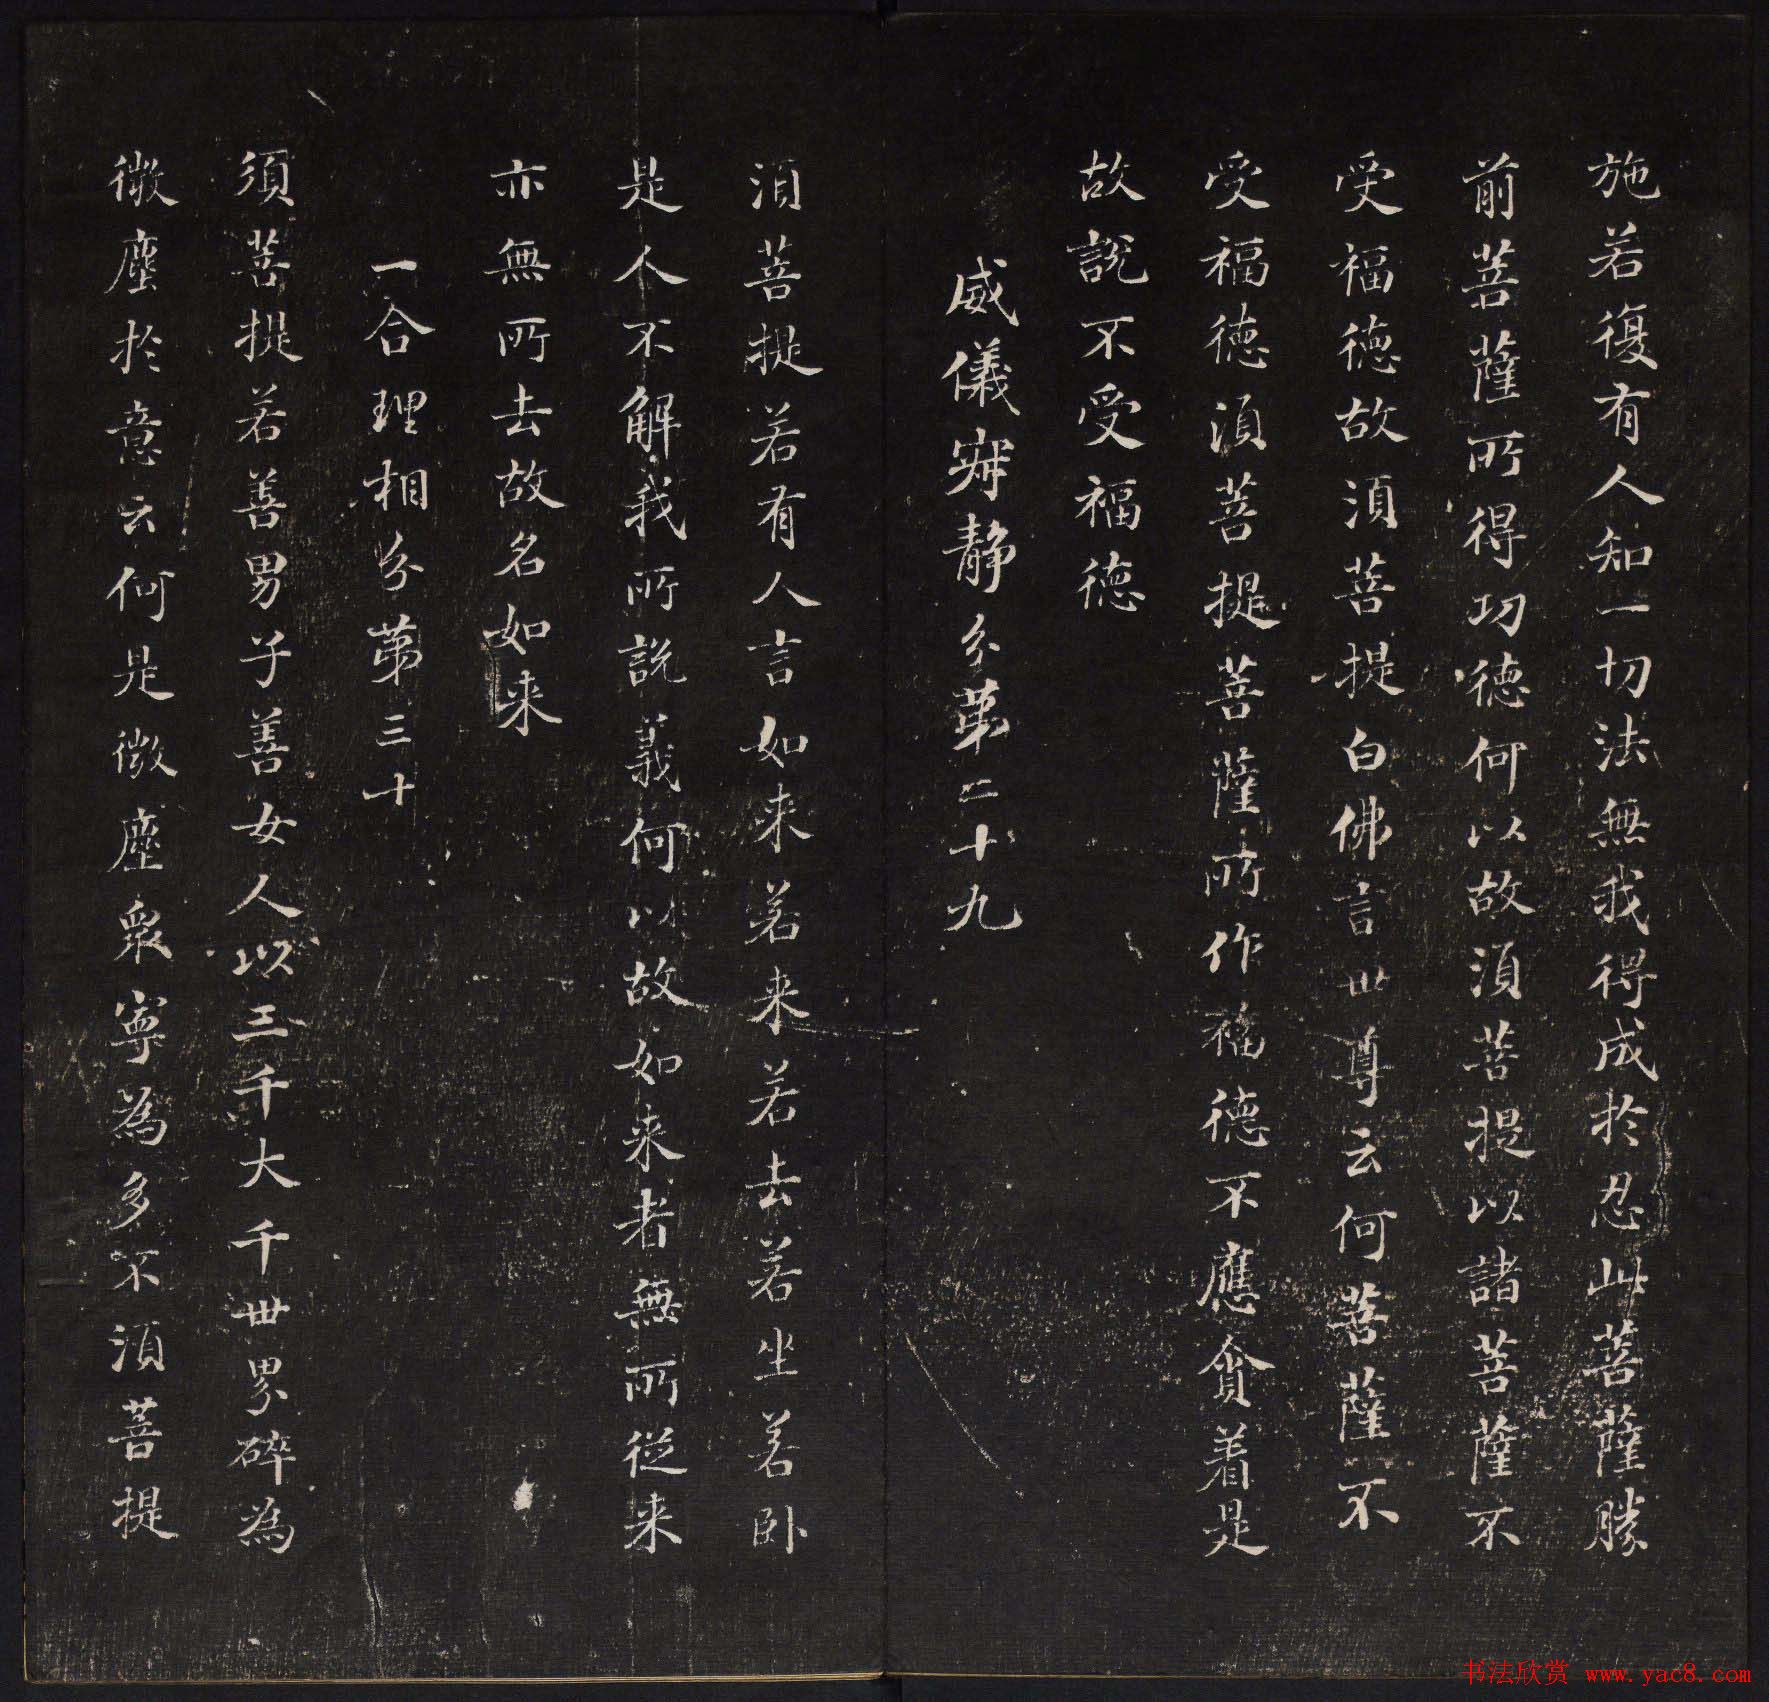 施若復有人知一切法無我得成於忍此菩薩勝
前菩薩所得功德何以故須菩提以諸菩薩不
受福德故須菩提白佛言世尊云何菩薩不
受福德須菩提菩薩所作福德不應貪着是
故說不受福德
威儀寂靜分第二十九
須菩提若有人言如来若来若去若坐若卧
是人不解我所說義何以故如来者無所從来
亦無所去故名如来
一合理相分第三十
須菩提若善男子善女人以三千大千世界碎為
微塵於意云何是微塵衆寧為多不須菩提
书法欣赏 www.yac8.com